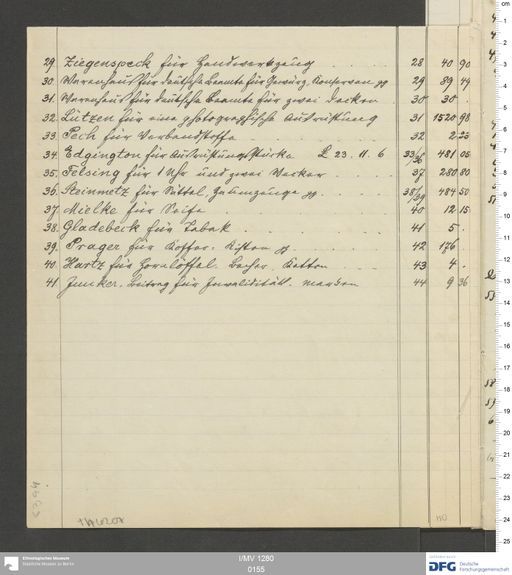 29. Ziegenspeck für Handwerkzeug . . . . 28 40 90
30. Warenhaus für deutsche Beamte für Gewürz, Konserven pp 29 89 49
31. Warenhaus für deutsche Beamte für zwei Decken 30 30 .
32. Lützen für eine photographische Ausrüstung 31 1520 98
33. Pech für Verbandstoffe . . . . 32 2 25
34. Edgington für Ausrüstungsstücke £ 23. 11. 6 33/36 481 05
35. Felsing für 1 Uhr und zwei Wecker . . . 37 280 80
36. Steinmetz für Sattel, Zaumzeuge pp . . . 38/39 484 50
37. Mielke für Seife . . . . 40 12 15
38. Gladebeck für Tabak . . . . 41 5 .
39. Prager für Koffer, Kisten pp . . . 42 176
40. Hartz für Hornlöffel, Becher, Ketten . . . 43 4 .
41. Junker, Beitrag für Invalidität. marken 44 9 36
I/MV 1280
0155
Ethnologisches Museum
Staatliche Museen zu Berlin
DFG Deutsche
Forschungsgemeinschaft